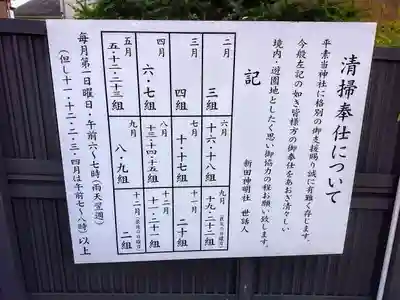 清掃奉仕について
平素当神社に格別の御支援賜り誠に有難く存じます。
今般左記の如き皆様方の御奉仕をあおぎ清々しい
境内・遊園地としたく思い御協力の程お願い致します。
新田神明社 世話人
記
二月
三組
三月
四組
四月
六・七組
五月
五・十二・二十三組
六月
十六・十八組
七月
十・十七組
八月
十三・十四・十五組
九月
八・九組
十九・二十二組
十一月
二十組
十二月
十一・二十一組
十二月
二組
毎月第一日曜日・午前六〜七時(雨天翌週)
(但し十一・十二・二・三・四月は午前七〜八時)以上